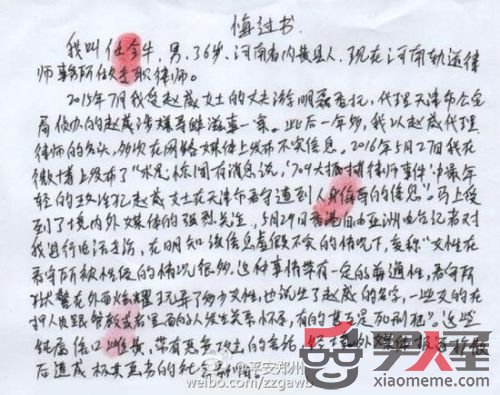 悔过书
我叫任全牛，男，36岁，河南省内黄县人，现在河南轨道律
师事务所任专职律师。
2015年7月我受赵威女士的丈夫游明磊委托，代理天津市公安
局侦办的赵威涉嫌寻衅滋事一案。此后一年多，我以赵威代理
律师的名义，多次在网络媒体上发布不实信息。2016年5月27日我在
微博上发布了“ 有消息说，‘709大抓捕律师事件’中最年
轻的 赵威女士在天津看守遭到人身侮辱的信息”。马上受
到了境内外媒体的强烈关注，5月29日香港自由亚洲电台记者对
我进行电话采访，在明知该信息虚假不实的情况下，妄称“女性在
看守所被性侵的情况很多。这种事情带有一定的普遍性，看守所
狱警在外面炫耀玩弄了多少女性，也说出了赵威的名字，一些女的在
押人员跟管教或者 的人发生关系怀孕，有的甚至是死刑犯”。这些
信口雌黄，带有恶意 的言论，经境外媒体报道扩散
后造成 的社会
@平安郑州
weibo.com/zzgawb
笑人星
xiaomeme.com